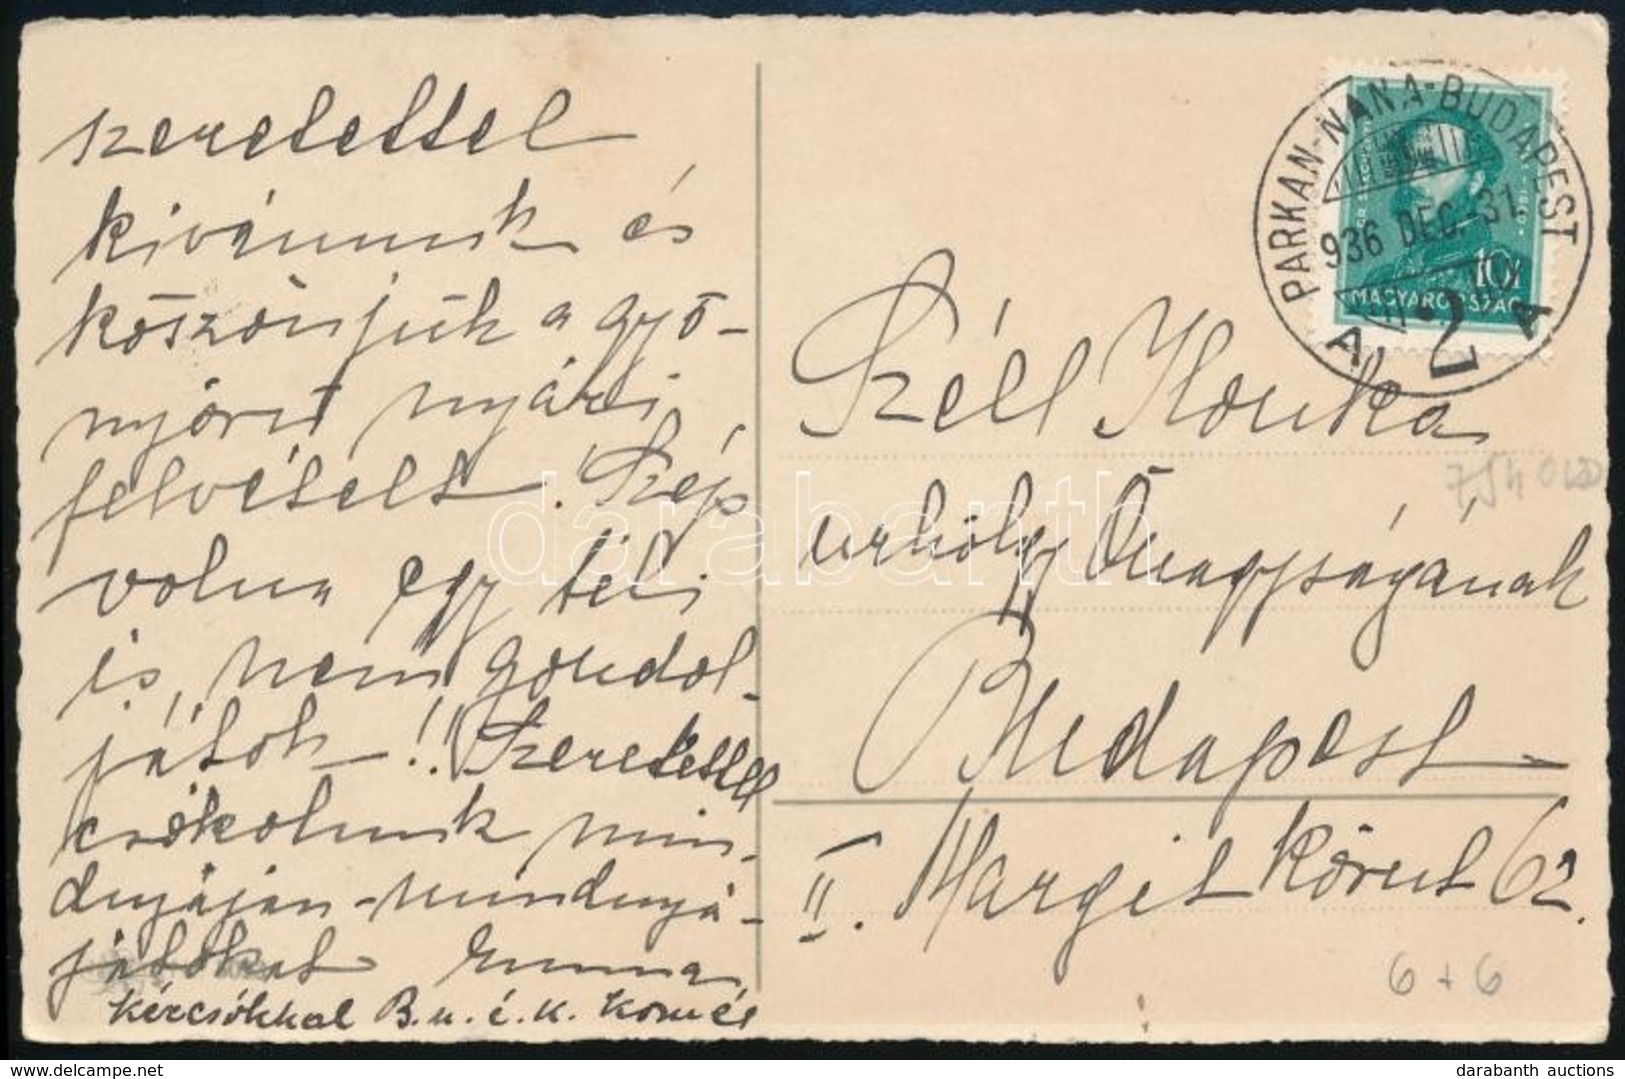 szeretettel
kivánunk és
köszönjük a gyö-
nyörű nyári
felvételt. Szép
volna egy téli
is, nem gondol-
játok!! Szeretettel
csókolunk min-
dnyájan - mindnyá-
játokat Emma
kézcsókkal B. u. é. k. Kornél
PARKAN-NANA-BUDAPEST
936 DEC. 31.
A 2 A
10f
MAGYARORSZÁG
Széll Ilonka
urhölgy Őnagyságának
Budapest
II. Margit körut 62.
6 + 6
darabanth
delcampe.net
darabanth auctions